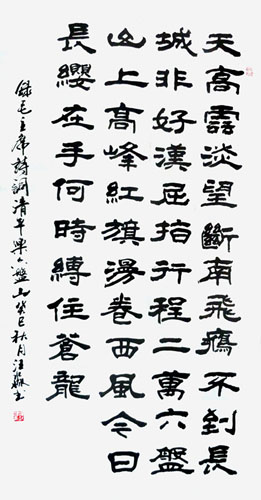 天高雲淡望斷南飛鴈不到長
城非好漢屈指行程二萬六盤
山上高峰紅旗漫卷西風今日
長纓在手何時縛住蒼龍
錄毛主席詩詞清平樂六盤山癸巳秋月汪書